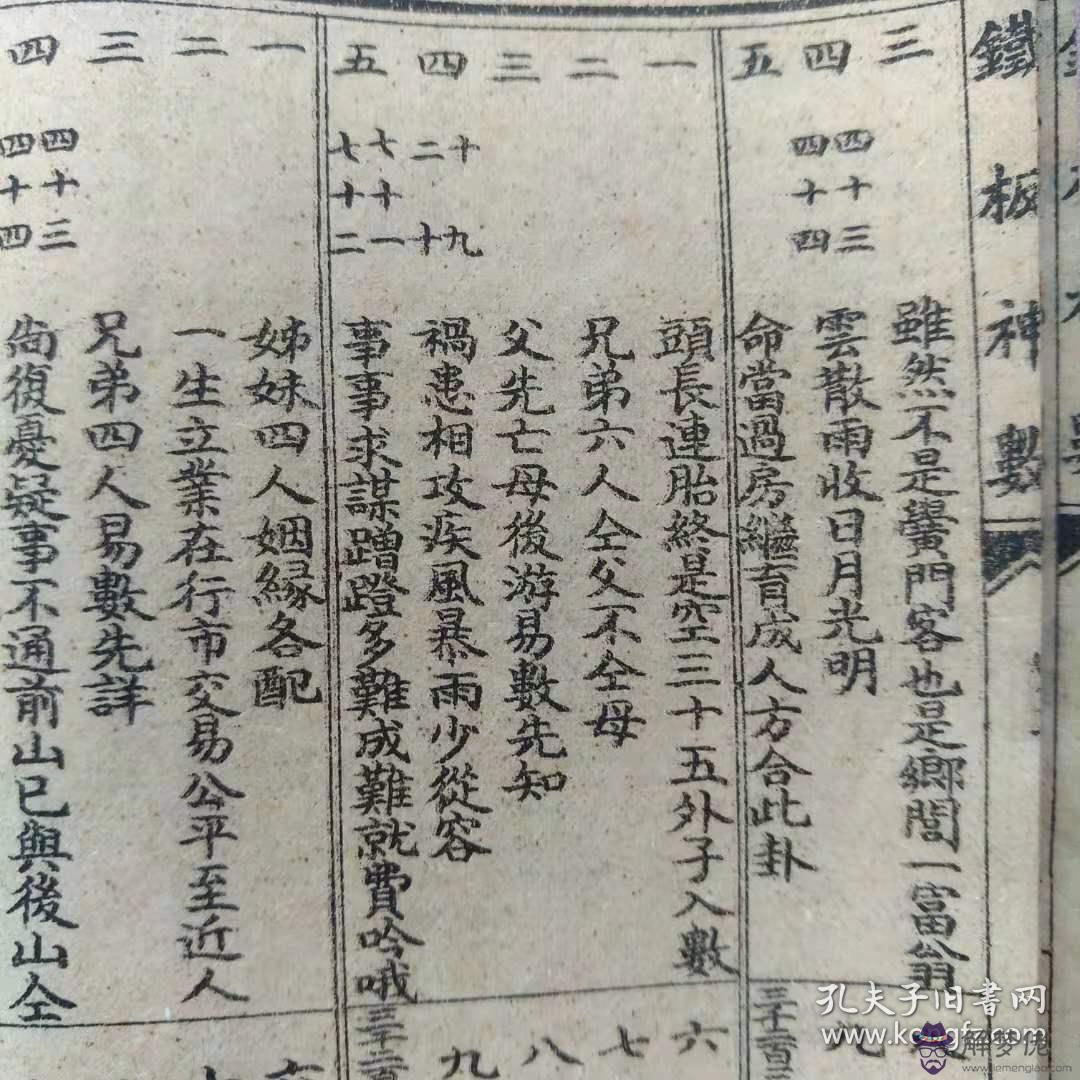 鐵板神數
三 雖然不是黌門客也是鄉閭一富翁
四 四十三 四十四 雲散雨收日月光明
五 命當過房繼育成人方合此卦
一 頭長連胎終是空三十五外子入數
二 兄弟六人仝父不仝母
三 父先亡母後游易數先知
四 十九 二十 禍患相攻疾風暴雨少從容
五 七十一 七十二 事事求謀蹭蹬多難成難就費吟哦
一 姊妹四人姻緣各配
二 一生立業在行市交易公平至近人
三 兄弟四人易數先詳
四 四十三 四十四 尚復憂疑事不通前山已與後山仝
六
七
八
九
孔夫子旧书网
www.kongfz.com
解梦佬
www.jiemenglao.com